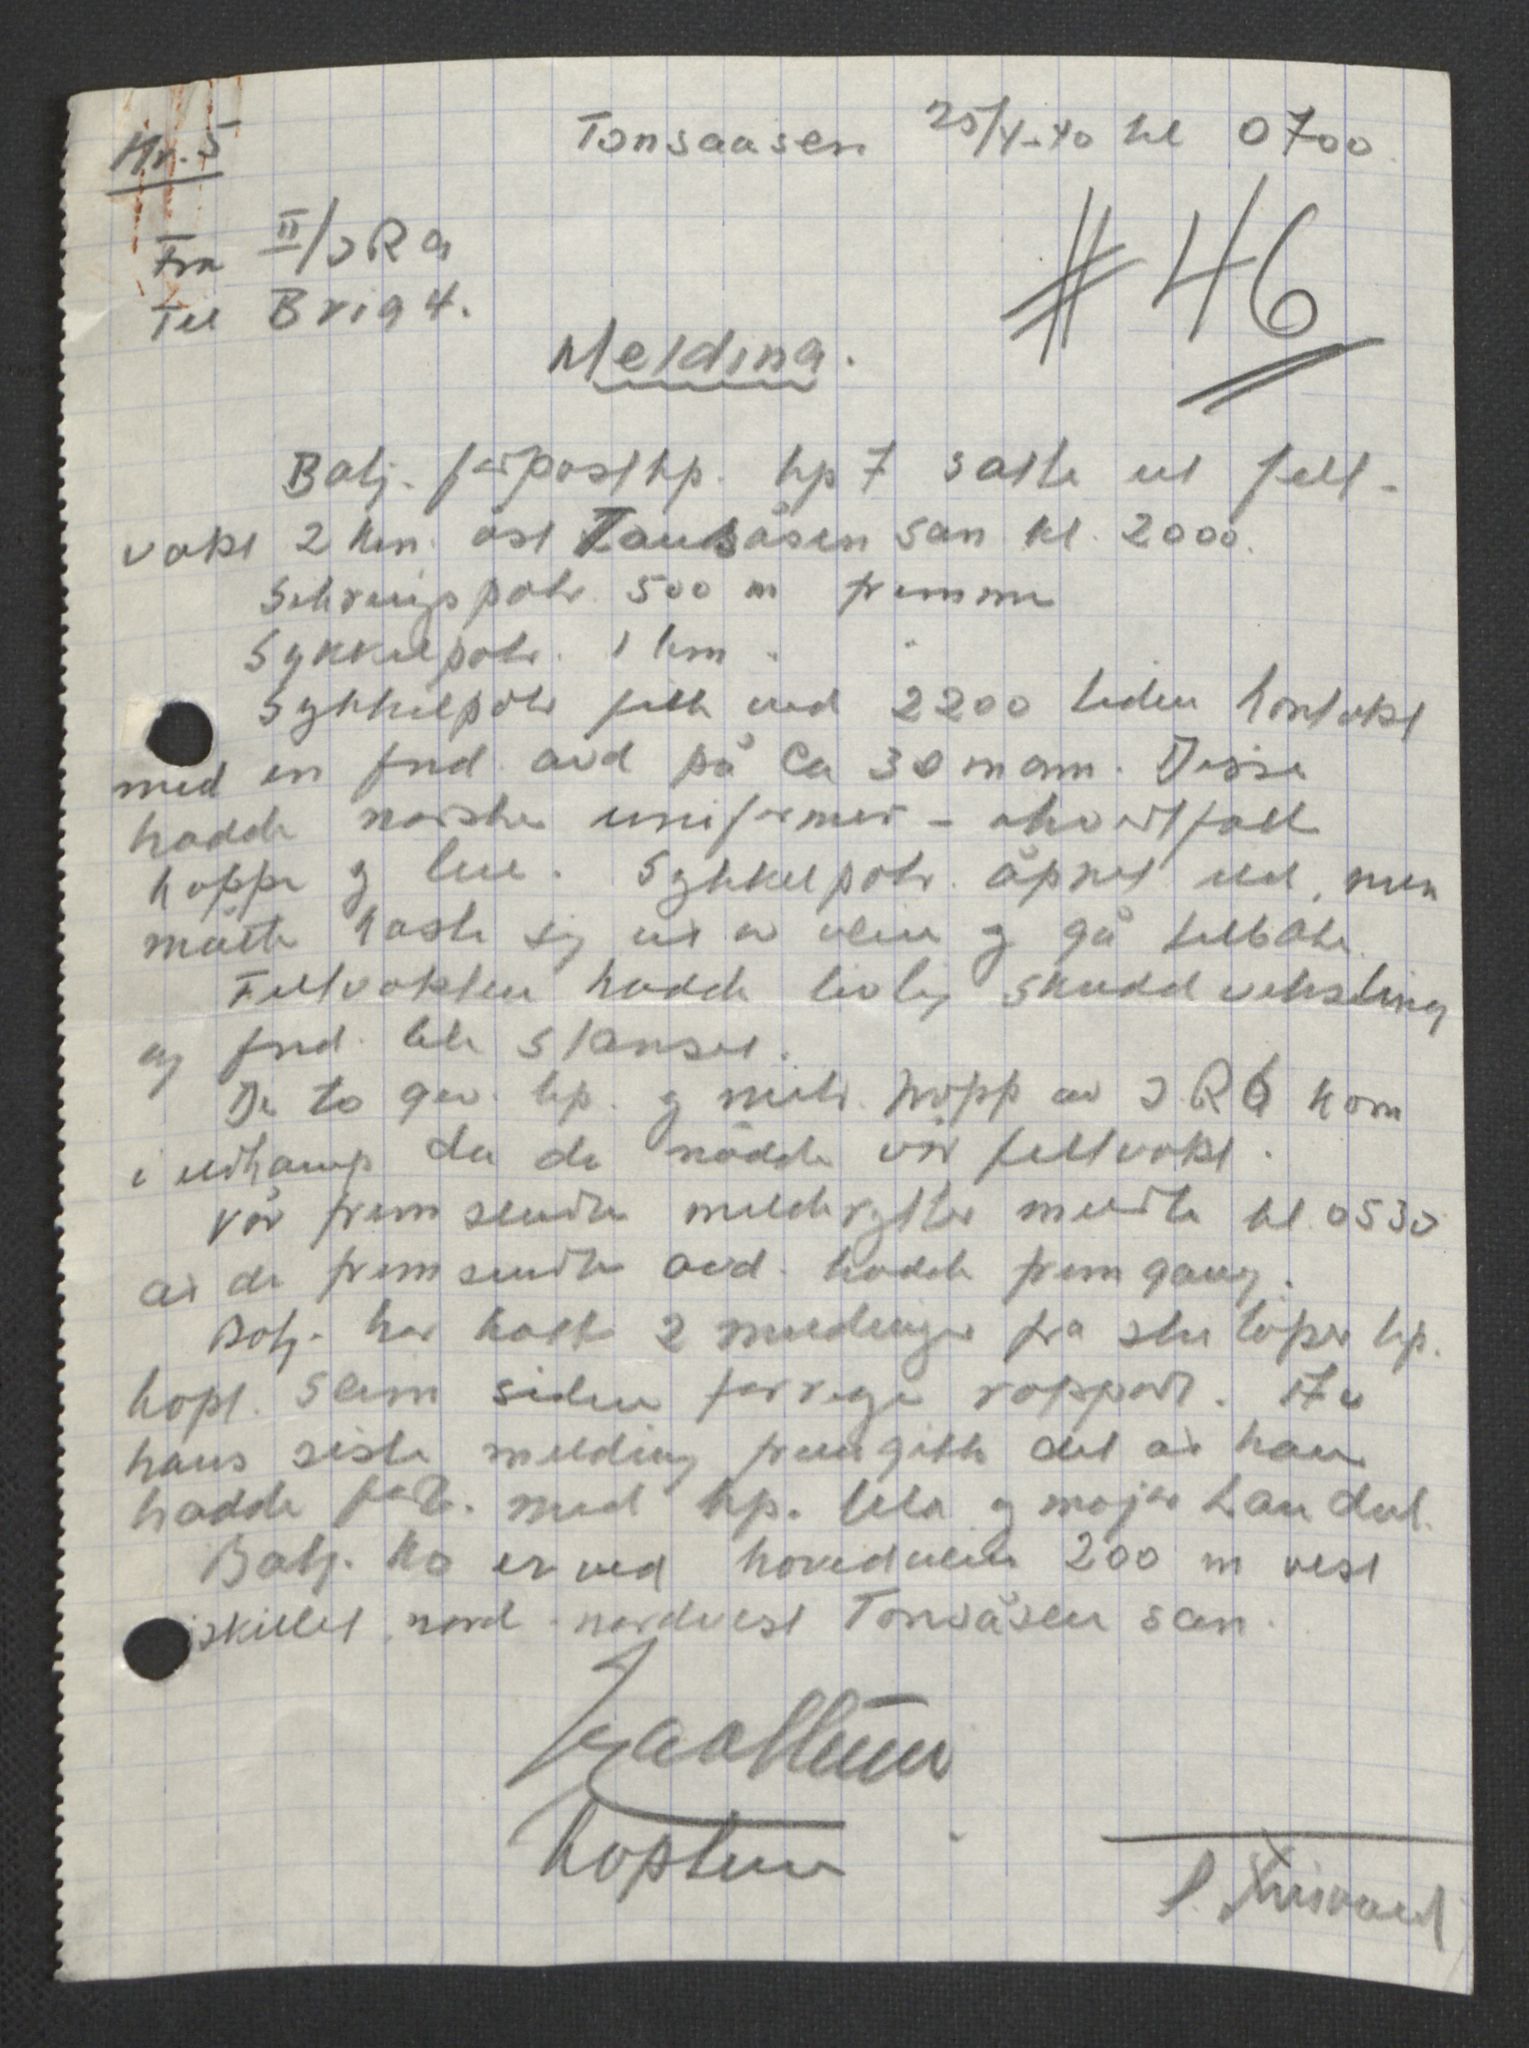 Nr. 5
Tonsaasen 25/4-40 kl 0700
# 46
Fra II/IR 9
Til Brig 4.
Melding.
Batj. forpostkp. kp 7 satte ut felt-
vakt 2 km. øst Tonsåsen san kl. 2000.
Sikringspatr. 500 m fremme
Sykkelpatr. 1 km "
Sykkelpatr fikk ved 2200 tiden kontakt
med en fiend. avd på ca 30 mann. Disse
hadde norske uniformer - ihvertfall
kappe og lue. Sykkelpatr. åpnet ild, men
måtte kaste sig ut av veien og gå tilbake.
Feltvakten hadde livlig skuddveksling
og fiend. ble stanset.
De to gev. kp. og mitr. tropp av IR 6 kom
i ildkamp da de nådde vår feltvakt.
Vår fremsendte melderytter meldte kl 0530
at de fremsendte avd. hadde fremgang.
Batj. har hatt 2 meldinger fra skiløper kp.
kapt. Seim siden forrige rapport. Av
hans siste melding fremgikk det at han
hadde forb. med kp. and major Landvik.
Batj. Ko er ved hovedveien 200 m vest
skillet nord-nordvest Tonsåsen san.
Kaptein